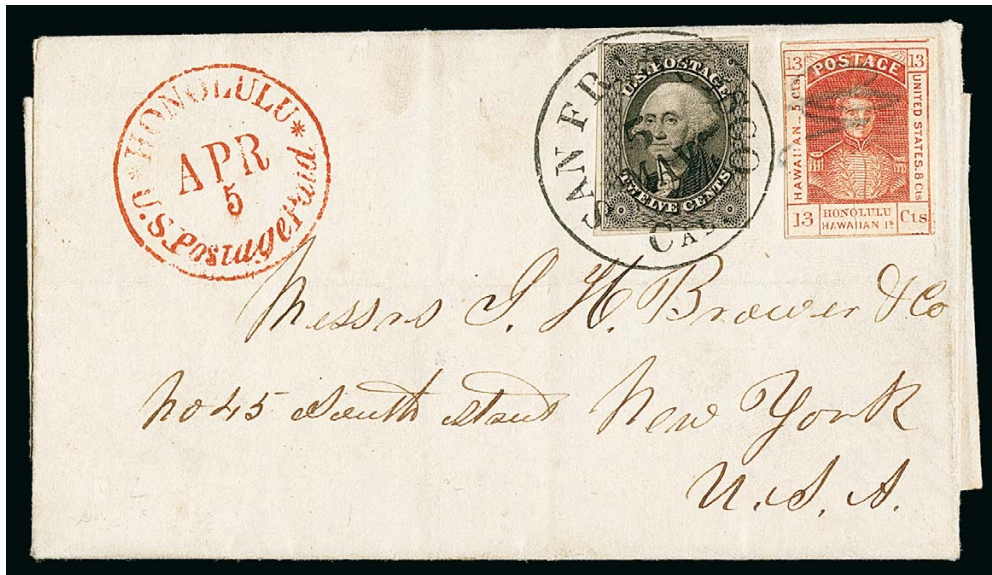 HONOLULU
APR
5
U.S. Postage Paid
SAN FRANCISCO
MAY
CAL
U.S. POSTAGE
TWELVE CENTS
13 POSTAGE 13
HAWAIIAN 5 Cts.
UNITED STATES. 8 Cts
13 HONOLULU HAWAIIAN Is Cts
Messrs S. H. Brower & Co
No 45 South Street New York
U.S.A.